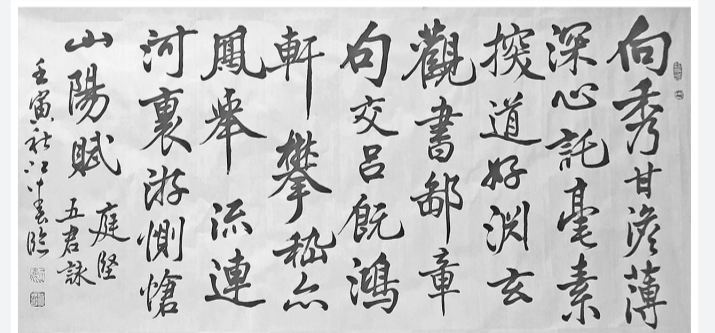 向秀甘澹薄
深心託毫素
探道好淵玄
觀書鄙章
句交呂既鴻
軒攀嵇亦
鳳舉流連
河裏游惻愴
山陽賦
庭堅
五君詠
壬寅秋江春臨